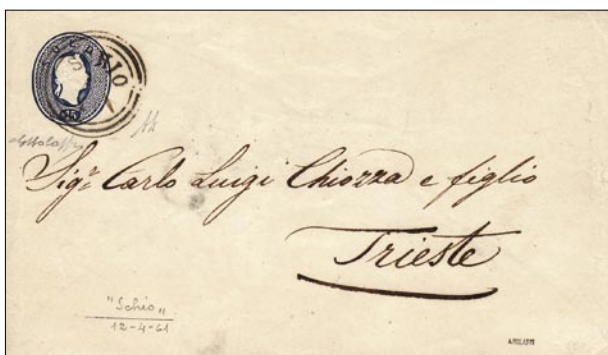 SCHIO
15
Sig.ri Carlo Luigi Chiozza e figlio
Trieste
"Schio"
12-4-61